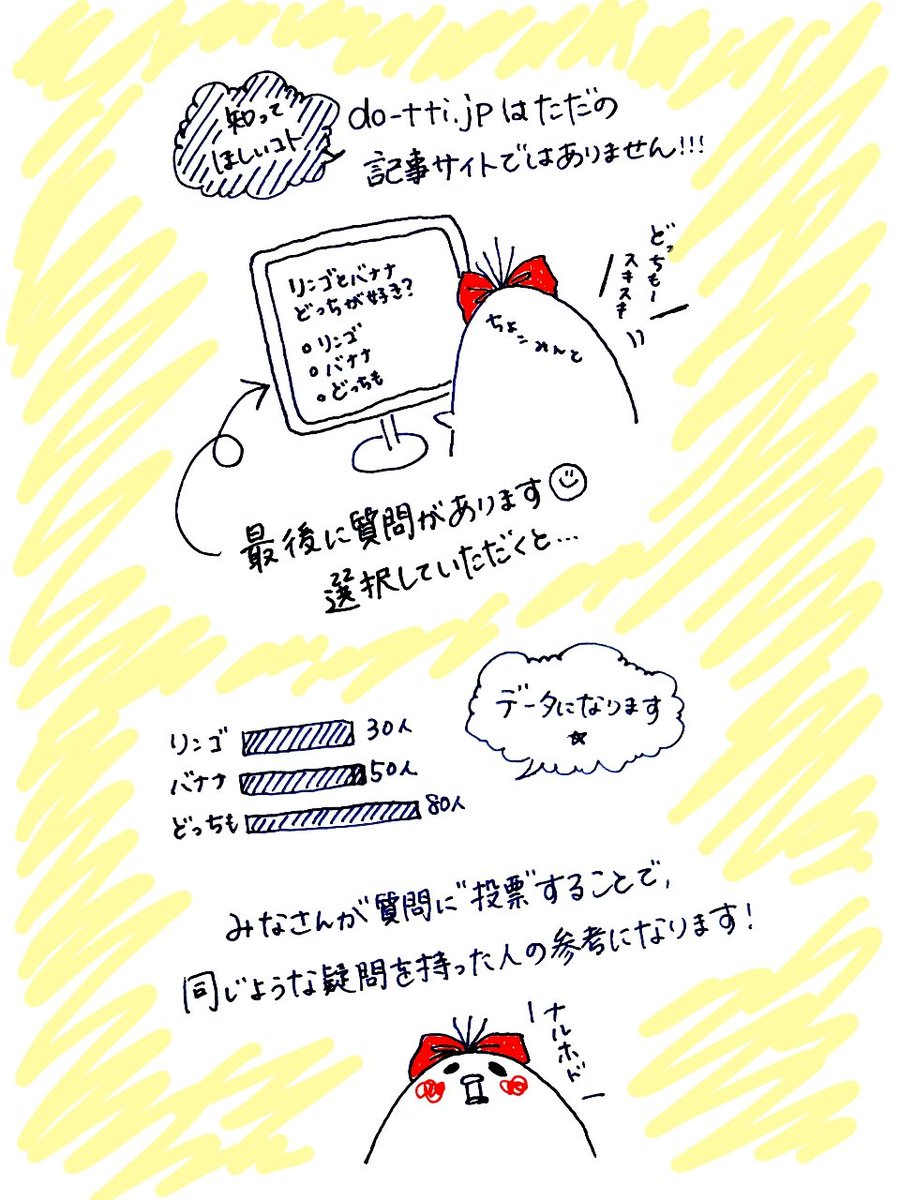 知って
ほしいコト
do-tti.jpはただの
記事サイトではありません!!!
リンゴとバナナ
どっちが好き?
リンゴ
バナナ
どっちも
ちょこみんと
どっちもー
スキスキ
最後に質問があります
選択していただくと...
データになります
☆
リンゴ 30人
バナナ 50人
どっちも 80人
みなさんが質問に"投票"することで、
同じような疑問を持った人の参考になります!
ナルホド